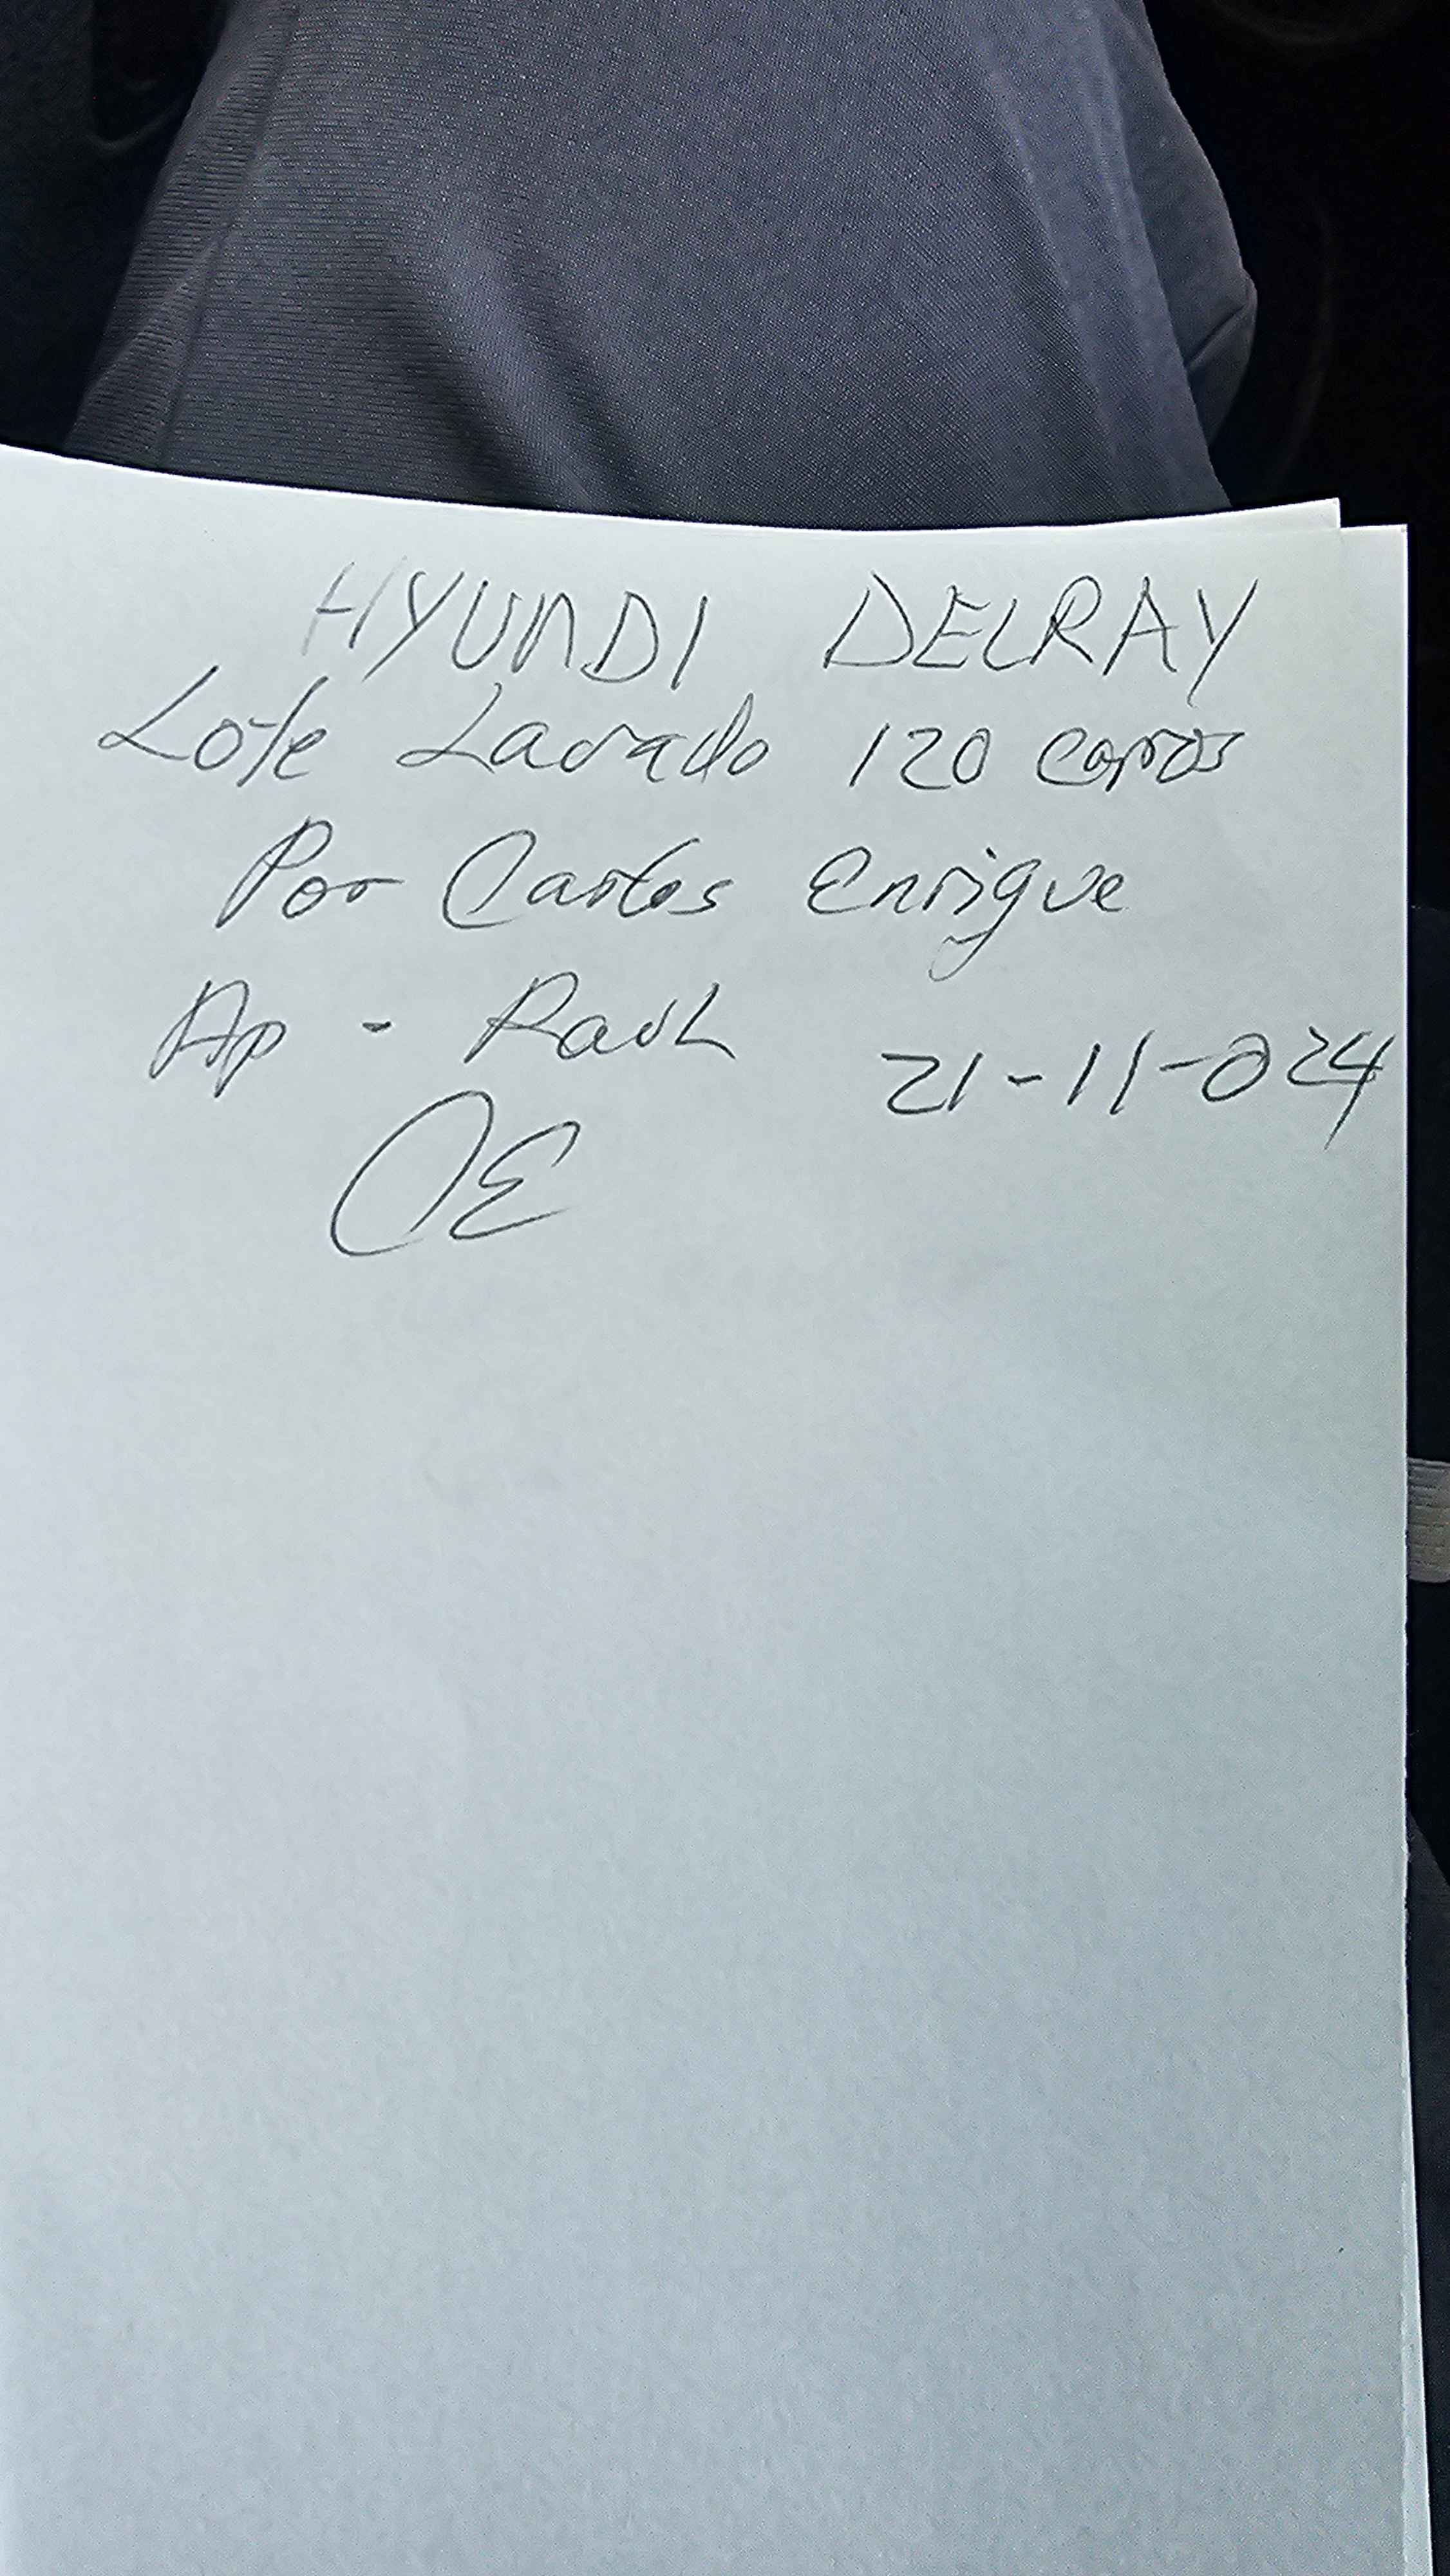 HYUNDI DELRAY
Lote Lavado 120 carros
Por Carlos Enrique
Ap - Raul 21-11-024
CE